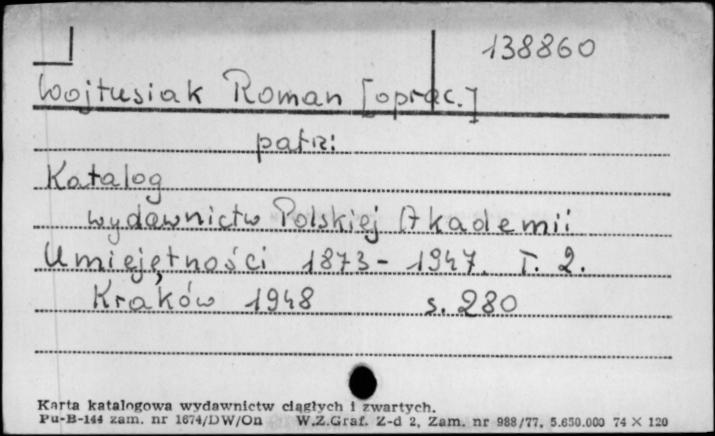 138860
Wojtusiak Roman [oprac.]
patrz:
Katalog
wydawnictw Polskiej Akademii
Umiejętności 1873-1947. T. 2.
Kraków 1948 s. 280
Karta katalogowa wydawnictw ciągłych i zwartych.
Pu-B-144 zam. nr 1674/DW/On W.Z.Graf. Z-d 2, Zam. nr 988/77. 5.650.000 74 × 120